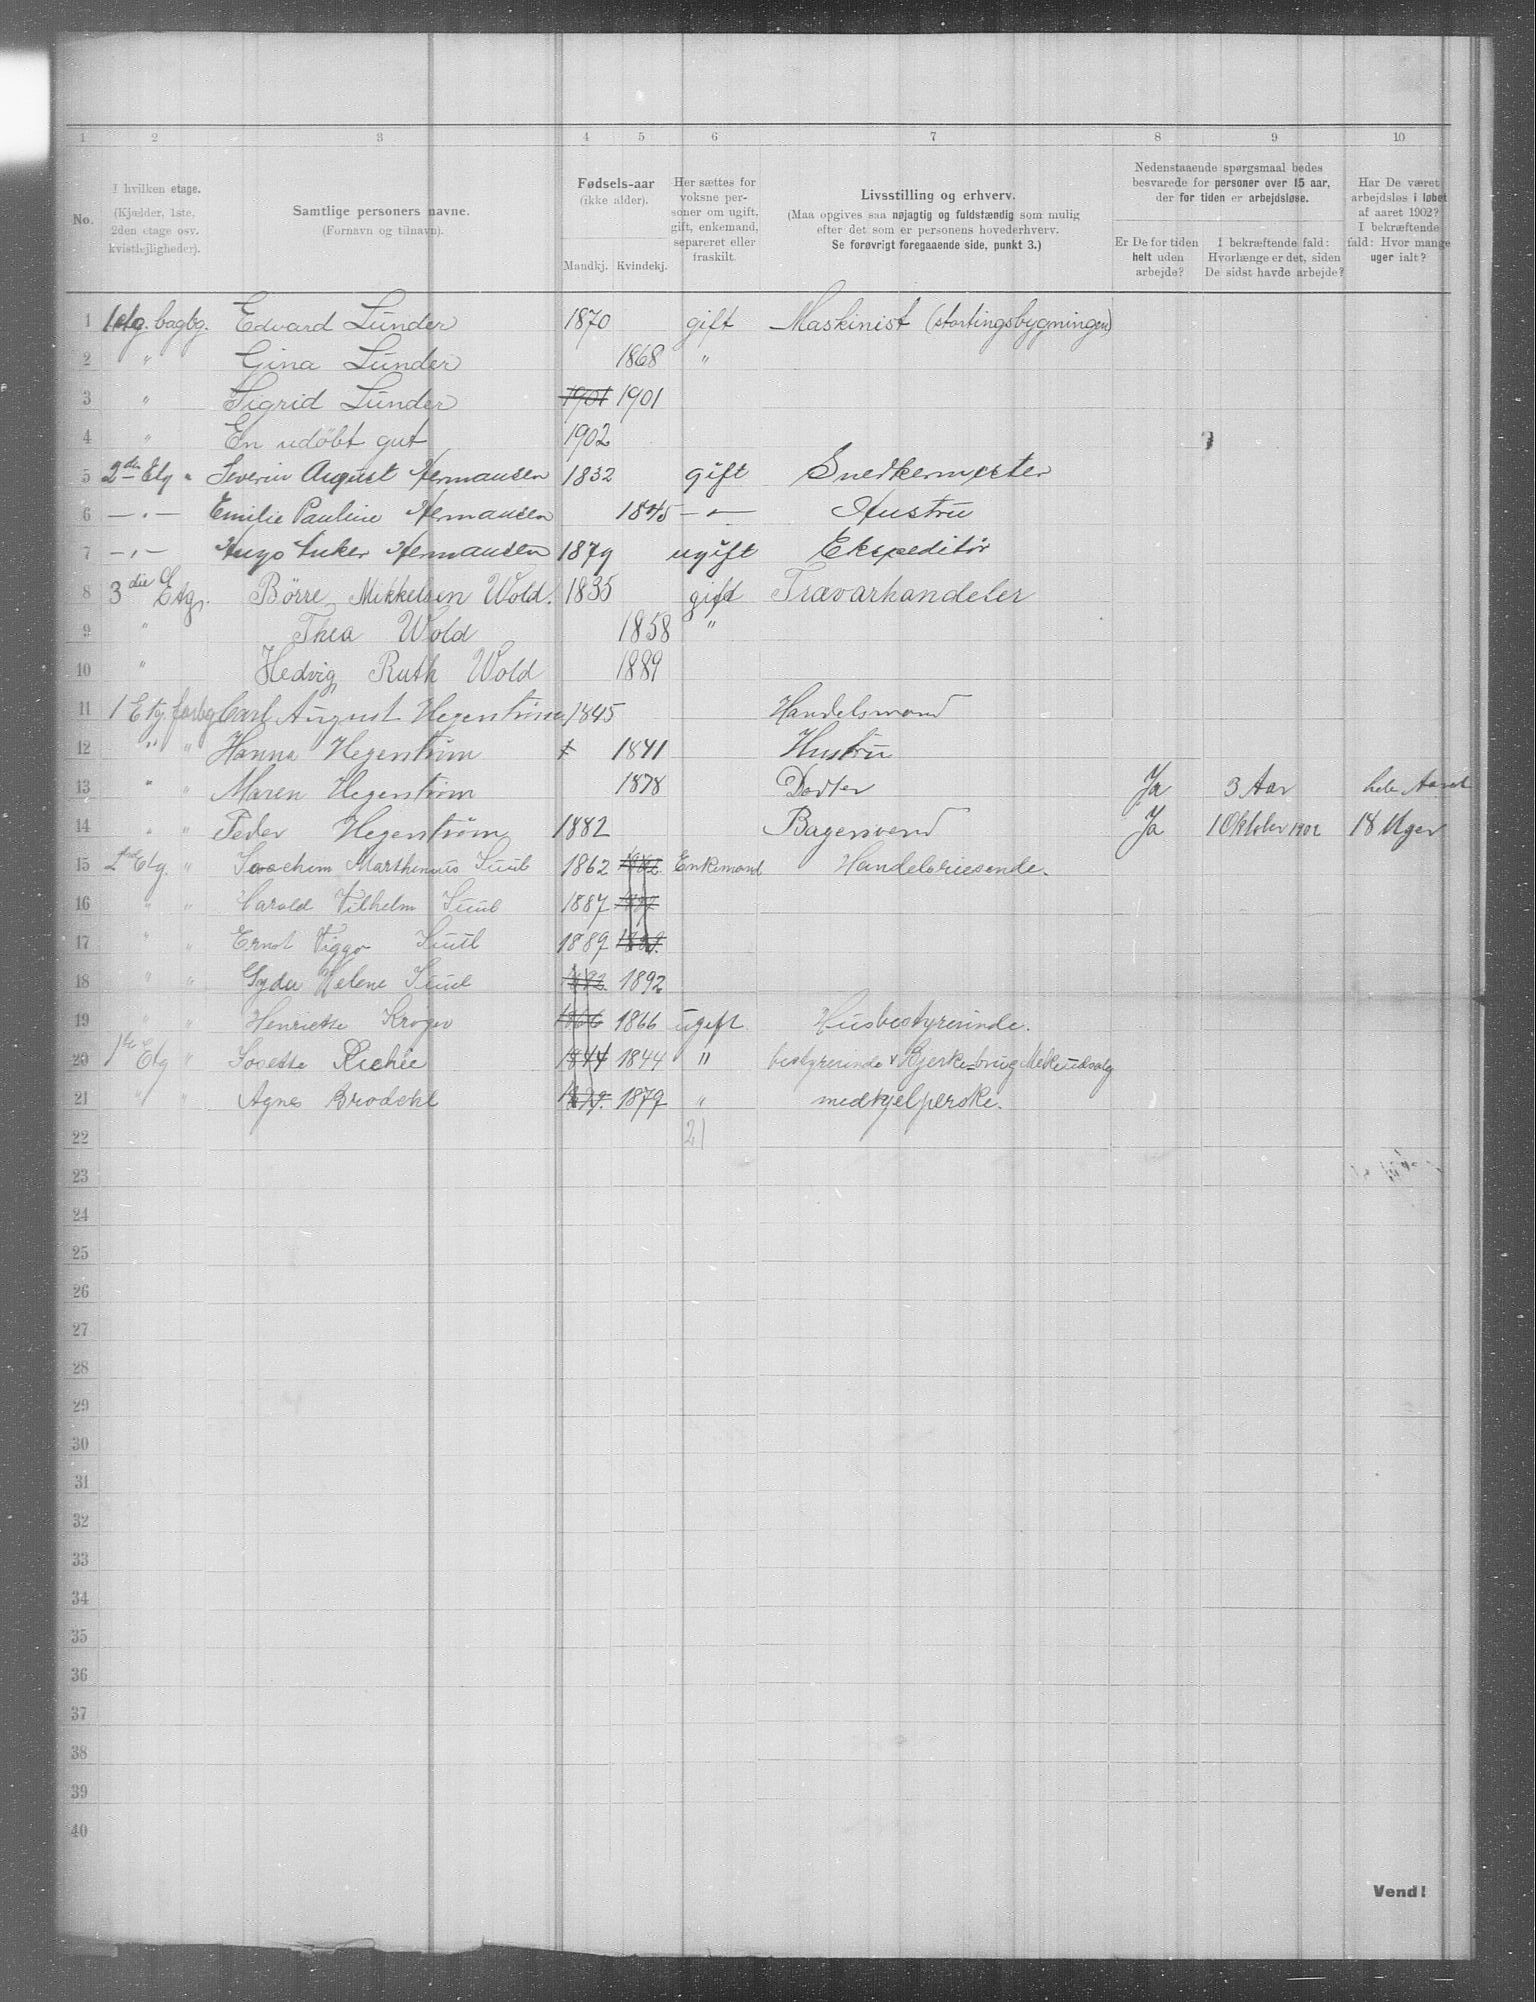 1 2 3 4 5 6 7 8 9 10
No.
I hvilken etage.
(Kjælder, 1ste,
2den etage osv.
kvistlejligheder).
Samtlige personers navne.
(Fornavn og tilnavn).
Fødsels-aar
(ikke alder).
Mandkj. Kvindekj.
Her sættes for
voksne per-
soner om ugift,
gift, enkemand,
separeret eller
fraskilt.
Livsstilling og erhverv.
(Maa opgives saa nøjagtig og fuldstændig som mulig
efter det som er personens hovederhverv.
Se forøvrigt foregaaende side, punkt 3.)
Nedenstaaende spørgsmaal bedes
besvarede for personer over 15 aar,
der for tiden er arbejdsløse.
Er De for tiden
helt uden
arbejde?
I bekræftende fald:
Hvorlænge er det, siden
De sidst havde arbejde?
Har De været
arbejdsløs i løbet
af aaret 1902?
I bekræftende
fald: Hvor mange
uger ialt?
1 1 etg. bagbg. Edvard Lunder 1870 gift Maskinist (stortingsbygningen)
2 " Gina Lunder 1868 "
3 " Sigrid Lunder 1901 1901
4 " En udøbt gut 1902
5 2den Etg " Severin August Hermansen 1832 gift Snedkermester
6 —"— Emilie Pauline Hermansen 1845 —"— Hustru
7 —"— Hugo Anker Hermansen 1879 ugift Ekspeditør
8 3die Etg. Börre Mikkelsen Wold. 1835 gift Trævarhandeler
9 " Thea Wold 1858 "
10 " Hedvig Ruth Wold 1889
11 1 Etg forbg Carl August Hegerstrøm 1845 Handelsmand
12 " " Hanna Hegerstrøm 1841 Hustru
13 " " Maren Hegerstrøm 1878 Dotter Ja 3 Aar hele Aaret
14 " " Peder Hegerstrøm 1882 Bagersvend Ja 1 Oktober 1902 18 Uger
15 2den Etg. " Joachim Marthinius Juul 1862 1862 Enkemand Handelsriesende.
16 " " Harald Vilhelm Juul 1887 1887
17 " " Ernst Viggo Juul 1889 1889
18 " " Gyda Helene Juul 1892 1892
19 " " Henriette Kroger 1866 1866 ugift Husbestyrerinde.
20 1ste Etg " Josette Richie 1844 1844 " bestyrerinde v Bjerke-brug Melkeudsalg
21 " " Agnes Brodahl 1879 1879 " medhjelperske.
22 21
23
24
25
26
27
28
29
30
31
32
33
34
35
36
37
38
39
40
Vend!